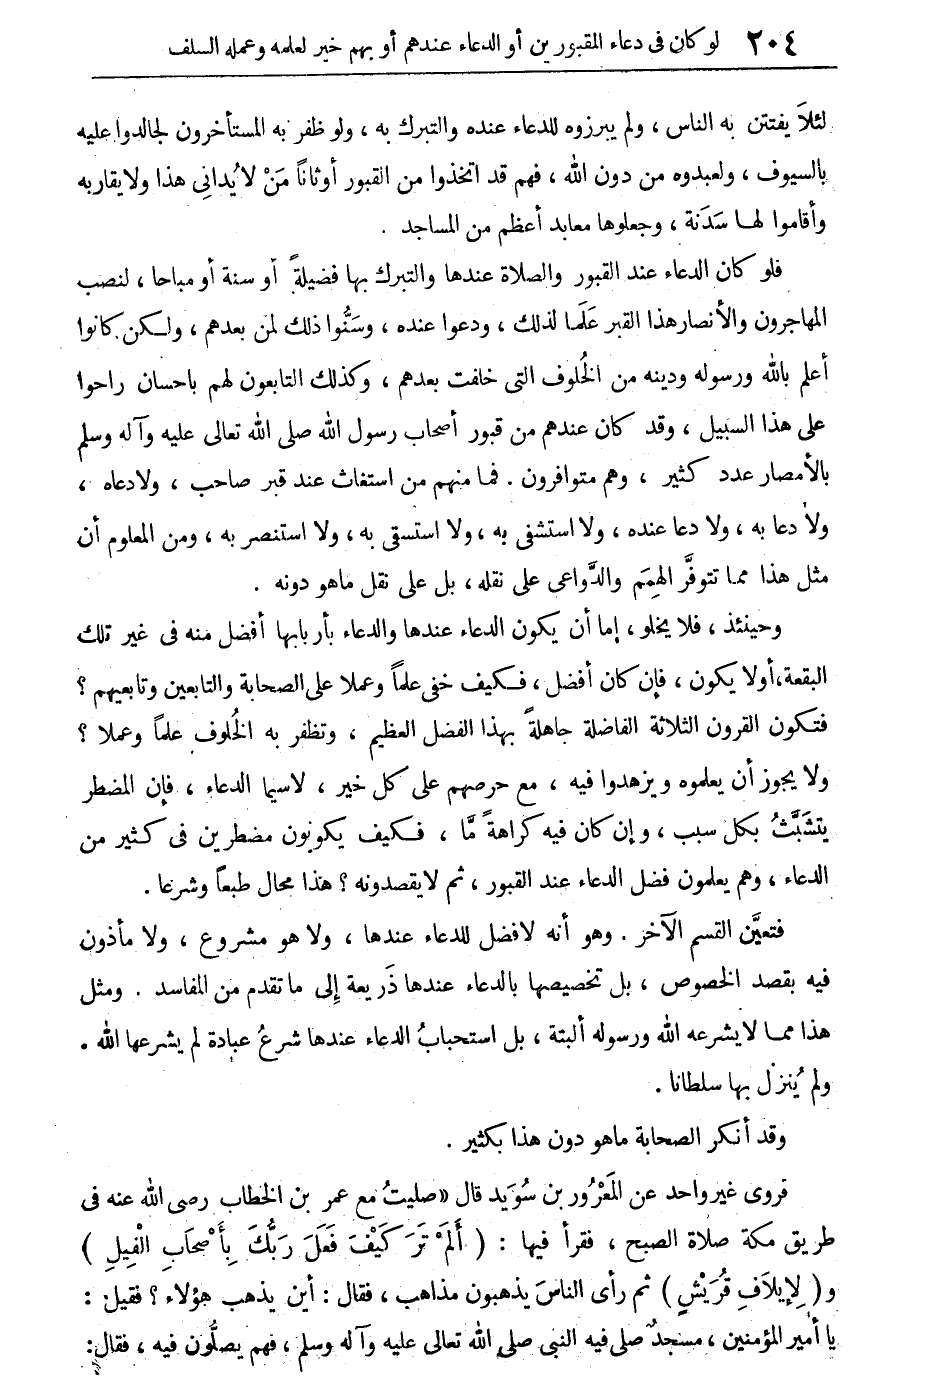 ٢٠٤ لو كان فى دعاء المقبورين أو الدعاء عندهم أو بهم خير لعلمه وعمله السلف
لئلاَ يفتتن به الناس ، ولم يبرزوه للدعاء عنده والتبرك به ، ولو ظفر به المستأخرون لجالدوا عليه
بالسيوف ، ولعبدوه من دون الله ، فهم قد اتخذوا من القبور أوثاناً مَنْ لا يُدانِى هذا ولا يقاربه
وأقاموا لهـا سَدَنة ، وجعلوها معابد أعظم من المساجد .
فلو كان الدعاء عند القبور والصلاة عندها والتبرك بها فضيلةً أو سنة أو مباحا ، لنصب
المهاجرون والأنصار هذا القبر عَلَما لذلك ، ودعوا عنده ، وسَنُّوا ذلك لمن بعدهم ، ولـكن كانوا
أعلم بالله ورسوله ودينه من الخُلوف التى خلفت بعدهم ، وكذلك التابعون لهم باحسان راحوا
على هذا السبيل ، وقد كان عندهم من قبور أصحاب رسول الله صلى الله تعالى عليه وآله وسلم
بالأمصار عدد كثير ، وهم متوافرون . فما منهم من استغاث عند قبر صاحب ، ولا دعاه ،
ولا دعا به ، ولا دعا عنده ، ولا استشفى به ، ولا استسقى به ، ولا استنصر به ، ومن المعلوم أن
مثل هذا ممـا تتوفَّر الهِمَم والدَّواعى على نقله ، بل على نقل ماهو دونه .
وحينئذ ، فلا يخلو ، إما أن يكون الدعاء عندها والدعاء بأربابها أفضل منه فى غير تلك
البقعة ، أو لا يكون ، فإن كان أفضل ، فـكيف خفى علماً وعملا على الصحابة والتابعين وتابعيهم ؟
فتـكون القرون الثلاثة الفاضلة جاهلةً بهذا الفضل العظيم ، وتظفر به الخُلوف علماً وعملا ؟
ولا يجوز أن يعلموه ويزهدوا فيه ، مع حرصهم على كل خير ، لاسيما الدعاء ، فإن المضطر
يتشَبَّثُ بكل سبب ، وإن كان فيه كراهةً مَّا ، فـكيف يكونون مضطرين فى كثير من
الدعاء ، وهم يعلمون فضل الدعاء عند القبور ، ثم لا يقصدونه ؟ هذا محال طبعاً وشرعا .
فتعيَّن القسم الآخر . وهو أنه لافضل للدعاء عندها ، ولا هو مشروع ، ولا مأذون
فيه بقصد الخصوص ، بل تخصيصها بالدعاء عندها ذَريعة إلى ما تقدم من المفاسد . ومثل
هذا ممـا لا يشرعه الله ورسوله ألبتة ، بل استحبابُ الدعاء عندها شرعُ عبادة لم يشرعها الله .
ولم يُنزل بها سلطانا .
وقد أنكر الصحابة ماهو دون هذا بكثير .
فروى غير واحد عن المَعْرُور بن سُوَيد قال « صليتُ مع عمر بن الخطاب رضى الله عنه فى
طريق مكة صلاة الصبح ، فقرأ فيها : ( أَلَمْ تَرَ كَيْفَ فَعَلَ رَبُّكَ بِأَصْحَابِ الْفِيلِ )
و ( لِإيلاَفِ قُرَيْشٍ ) ثم رأى الناسَ يذهبون مذاهب ، فقال : أين يذهب هؤلاء ؟ فقيل :
يا أمير المؤمنين ، مسجدٌ صلى فيه النبى صلى الله تعالى عليه وآله وسلم ، فهم يصلُّون فيه ، فقال :